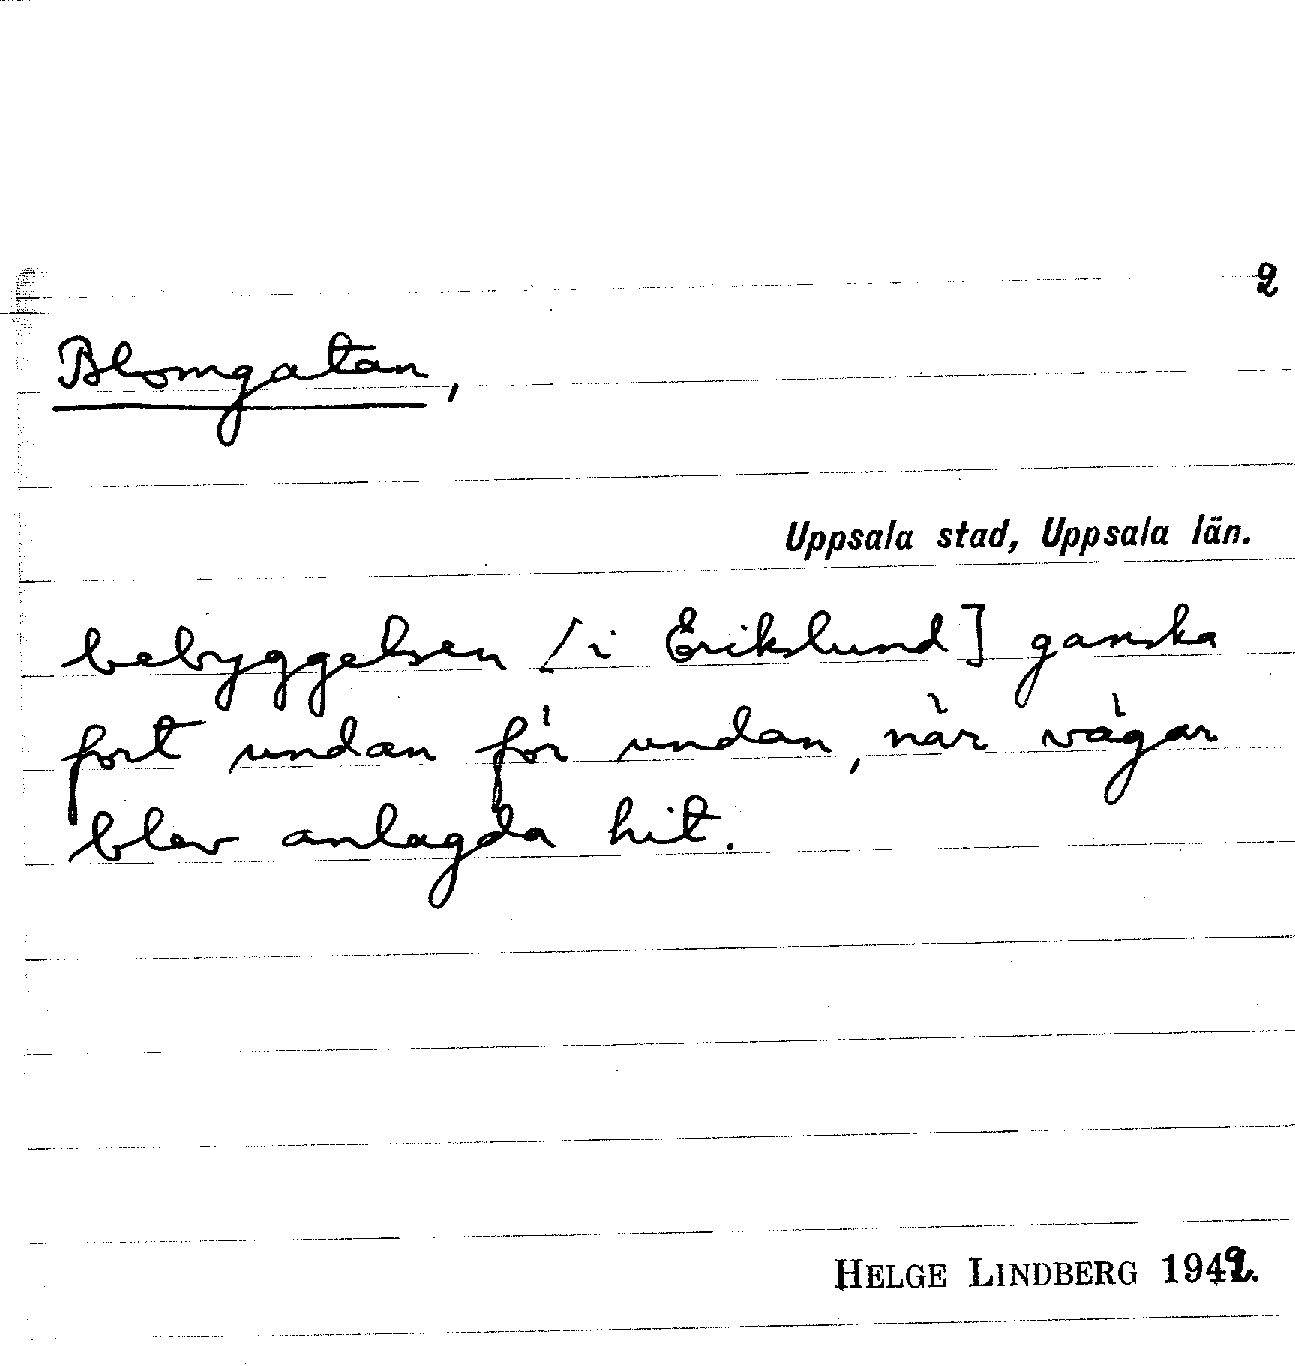 2
Blomgatan,
Uppsala stad, Uppsala län.
bebyggelsen [i Erikslund] ganska
fort undan för undan, när vägar
blev anlagda hit.
HELGE LINDBERG 1942.